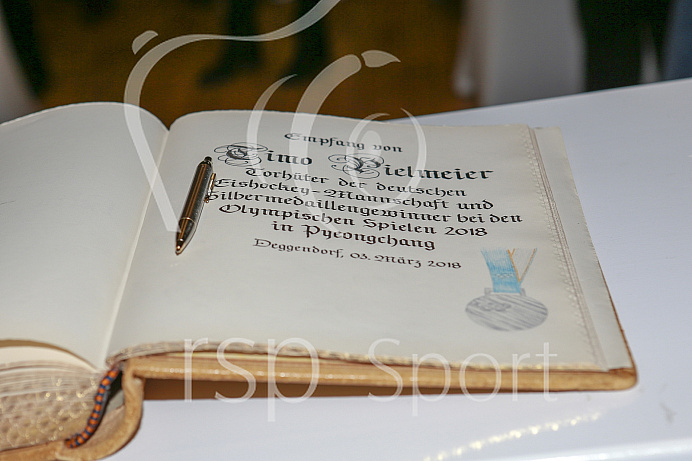 Empfang von
Timo Pielmeier
Torhüter der deutschen
Eishockey-Mannschaft und
Silbermedaillengewinner bei den
Olympischen Spielen 2018
in Pyeongchang
Deggendorf, 03. März 2018
rsp Sport